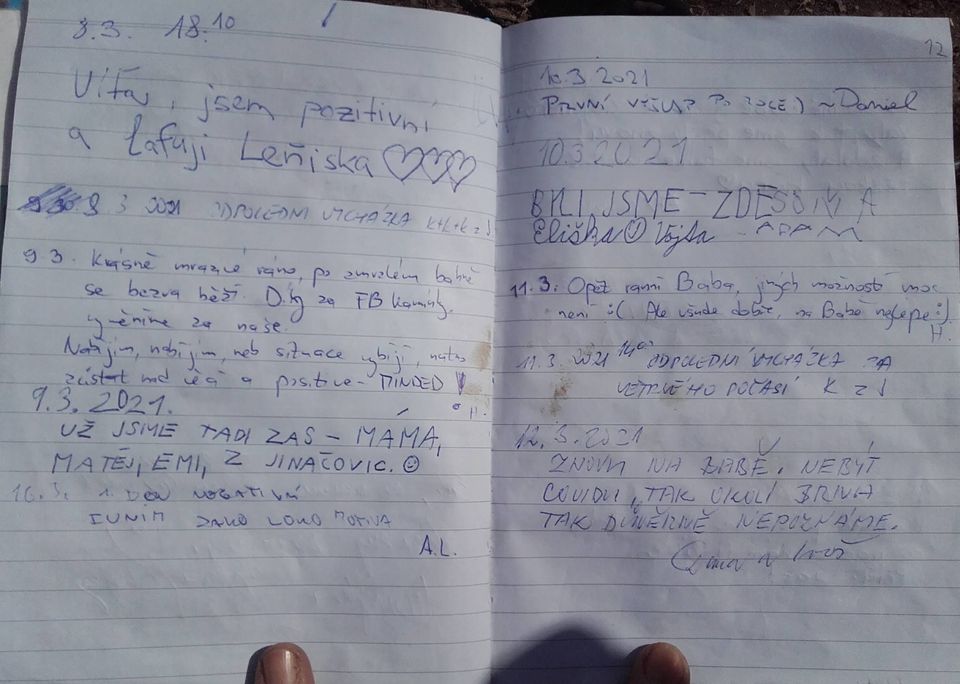 8.3. 18:10
Vítaj, jsem pozitivní
a ťafuji Leňiska
9.3 2021 ODPOLEDNÍ VYCHÁZKA K+K+K z J
9.3. Krásně mrazivé ráno, po zmrzlém bahně
se bezva běží. Díky za FB kamínky,
vyměníme za naše.
Nabíjím, nabíjím, neb situace vybíjí, nutno
zůstat nad věcí a positive-MINDED
H.
9.3. 2021.
UŽ JSME TADI ZAS - MÁMA,
MATĚJ, EMI, Z JINAČOVIC.
10.3. 1. DEN NEGATIVNÍ
FUNÍM JAKO LOKOMOTIVA
A.L.
12
10.3 2021
PRVNÍ PO ROCE) ~Daniel
10.3 2021
BYLI JSME - ZDE
Eliška Vojta - ADAM
11.3. Opět ranní Baba, jiných možností moc
není :( Ale všude dobře, na Babě nejlépe :)
H.
11.3. 2021 ODPOLEDNÍ VYCHÁZKA ZA
VĚTRNÉHO POČASÍ K z J
12.3.2021
ZNOVU NA BABĚ. NEBÝT
COVIDU, TAK OKOLÍ BRNA
TAK DŮVĚRNĚ NEPOZNÁME.